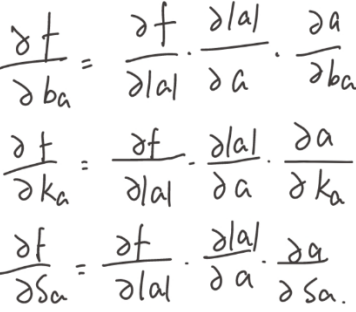 ∂f/∂ba = ∂f/∂|a| · ∂|a|/∂a · ∂a/∂ba
∂f/∂ka = ∂f/∂|a| · ∂|a|/∂a · ∂a/∂ka
∂f/∂Sa = ∂f/∂|a| · ∂|a|/∂a · ∂a/∂Sa.